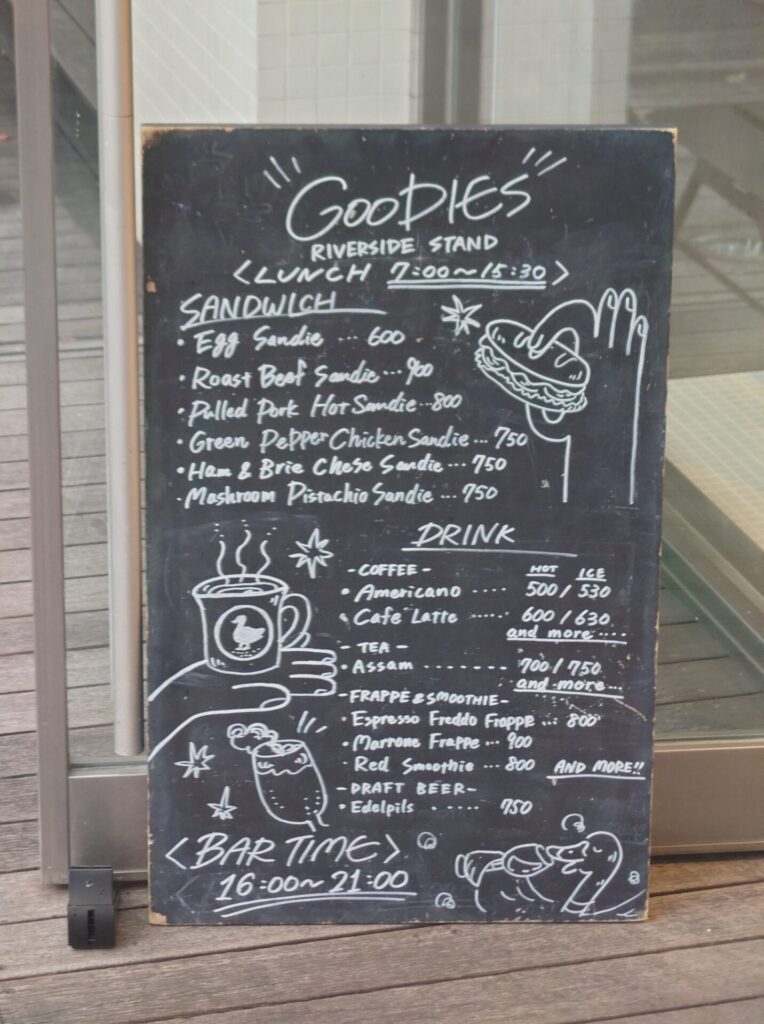 GOODIES
RIVERSIDE STAND
<LUNCH 7:00~15:30>
SANDWICH
• Egg Sandie ... 600
• Roast Beef Sandie ... 900
• Pulled Pork Hot Sandie ... 800
• Green Pepper Chicken Sandie ... 750
• Ham & Brie Chese Sandie ... 750
• Mashroom Pistachio Sandie ... 750
DRINK
- COFFEE - HOT ICE
• Americano ..... 500 / 530
• Cafe Latte ..... 600 / 630
and more ....
- TEA -
• Assam ........ 700 / 750
and more ...
- FRAPPE & SMOOTHIE -
• Espresso Freddo Frappe ... 800
• Marrone Frappe ... 900
• Red Smoothie ... 800 AND MORE!!
- DRAFT BEER -
• Edelpils ..... 750
<BAR TIME>
16:00~21:00